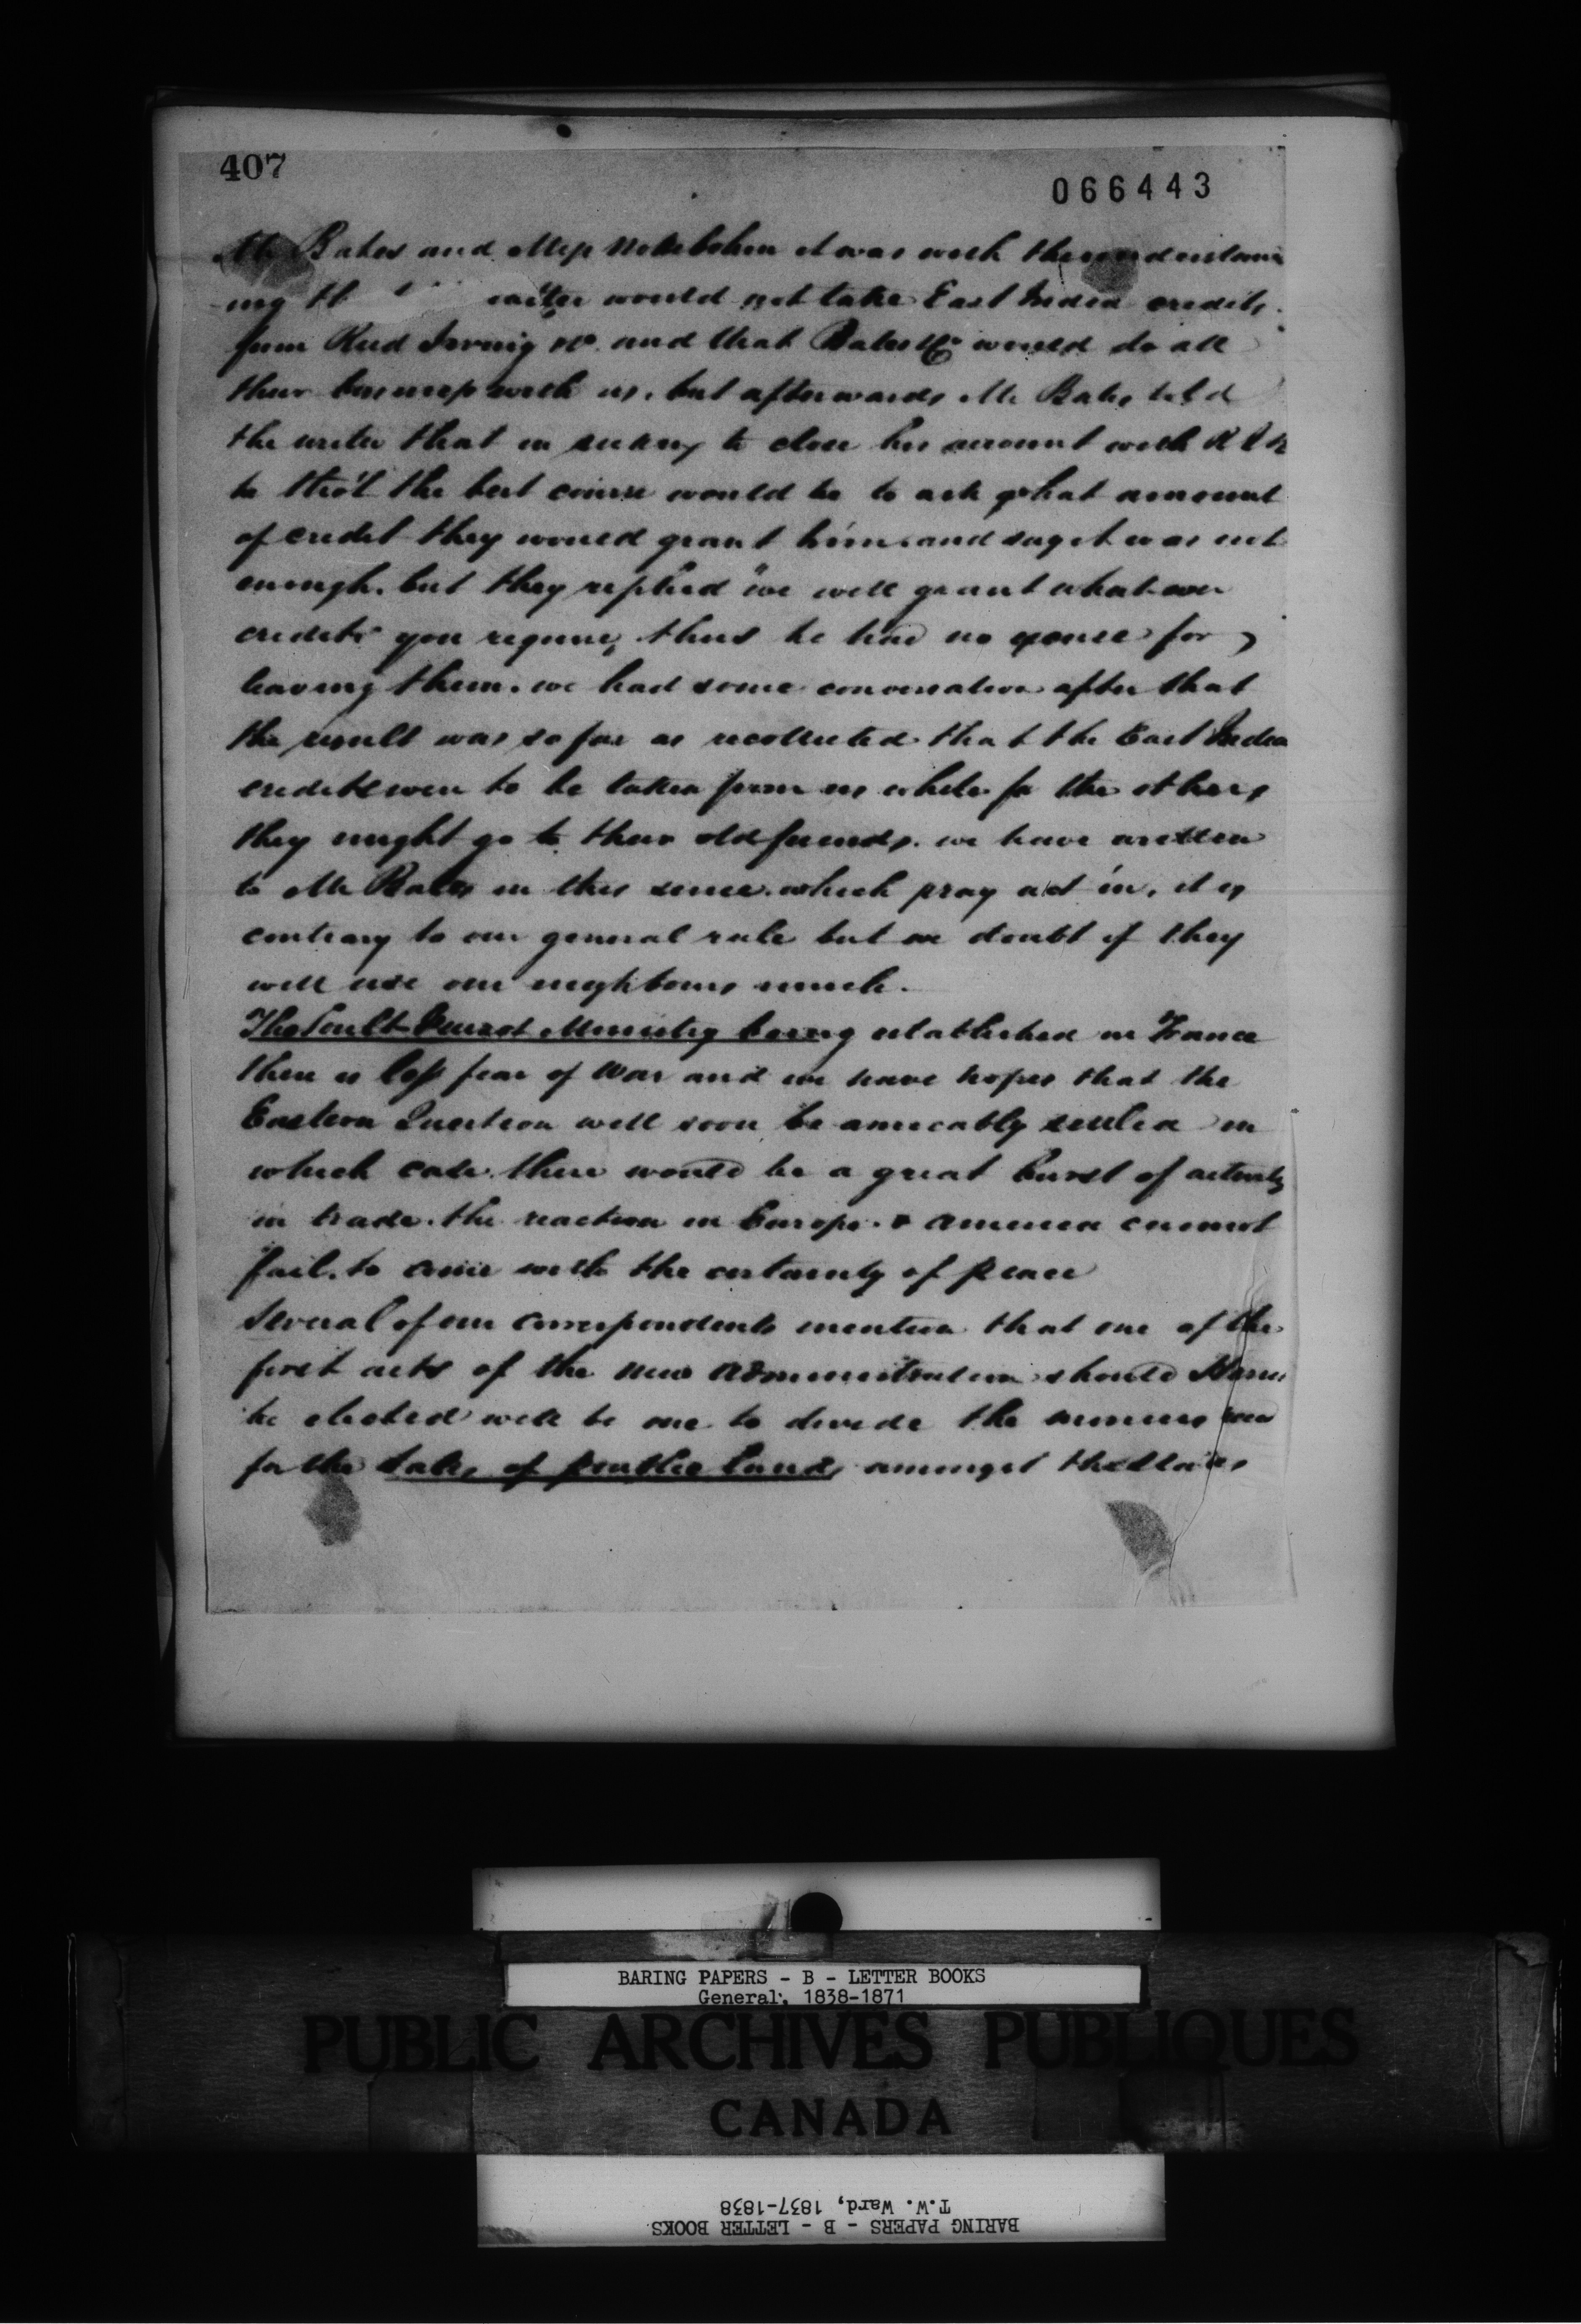 407
066443
Mr Bates and Mess Nottebohm it was with the understand
ing th latter would not take East India credits
from Reid Irving &Co. and that Bates &Co would do all
their business with us, but afterwards Mr Bates told
the writer that in seeking to close his account with R I &Co
he tho't the best course would be to ask what amount
of credit they would grant him and say it was not
enough, but they replied "we will grant whatever
credits you require, thus he had no excuse for
leaving them. we had some conversation after that
the result was so far as recollected that the East India
credits were to be taken from us while for the others
they might go to their old friends. we have written
to Mr Bates in this sense which pray act in, it is
contrary to our general rule but we doubt if they
will use our neighbours much.
The Soult Guizot Ministry being established in France
there is less fear of War and we have hopes that the
Eastern Question will soon be amicably settled in
which case there would be a great burst of activity
in trade. the reaction in Europe & America cannot
fail to come with the certainty of peace
Several of our correspondents mention that one of the
first acts of the new administration should Harris
be elected will be one to divide the
for the Sales of public lands amongst the States
BARING PAPERS - B - LETTER BOOKS
General, 1838-1871
PUBLIC ARCHIVES PUBLIQUES
CANADA
BARING PAPERS - B - LETTER BOOKS
T.W. Ward, 1837-1838